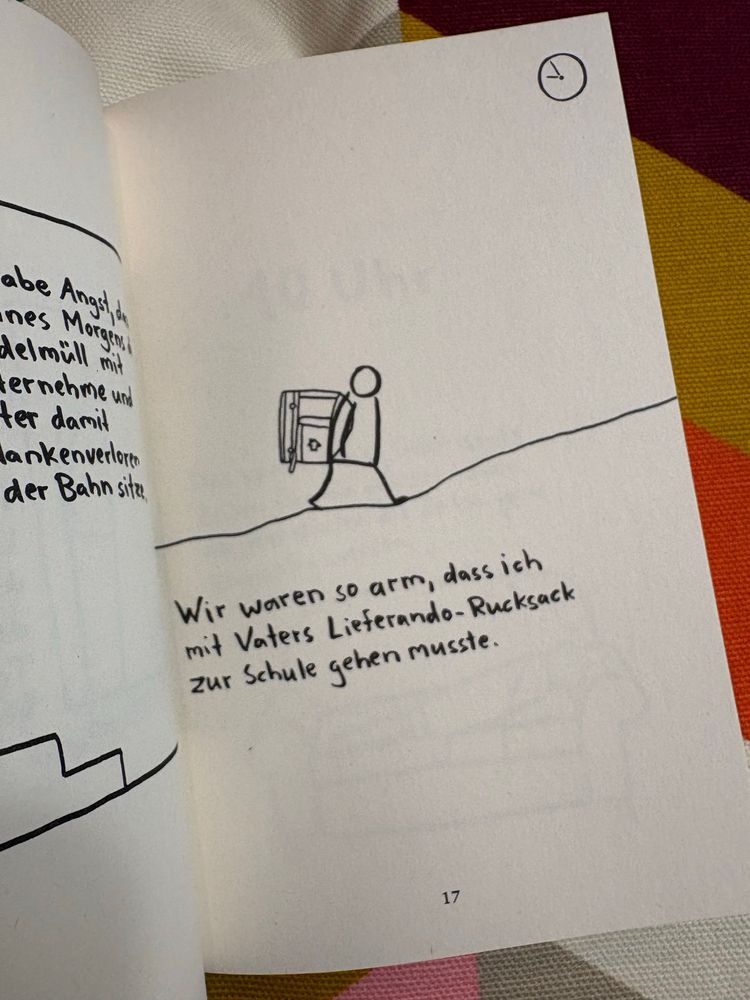 abe Angst,
Morgens
delmüll mit
ternehme und
ter damit
dankenverloren
der Bahn sitze.
10 Uhr
Wir waren so arm, dass ich
mit Vaters Lieferando-Rucksack
zur Schule gehen musste.
17